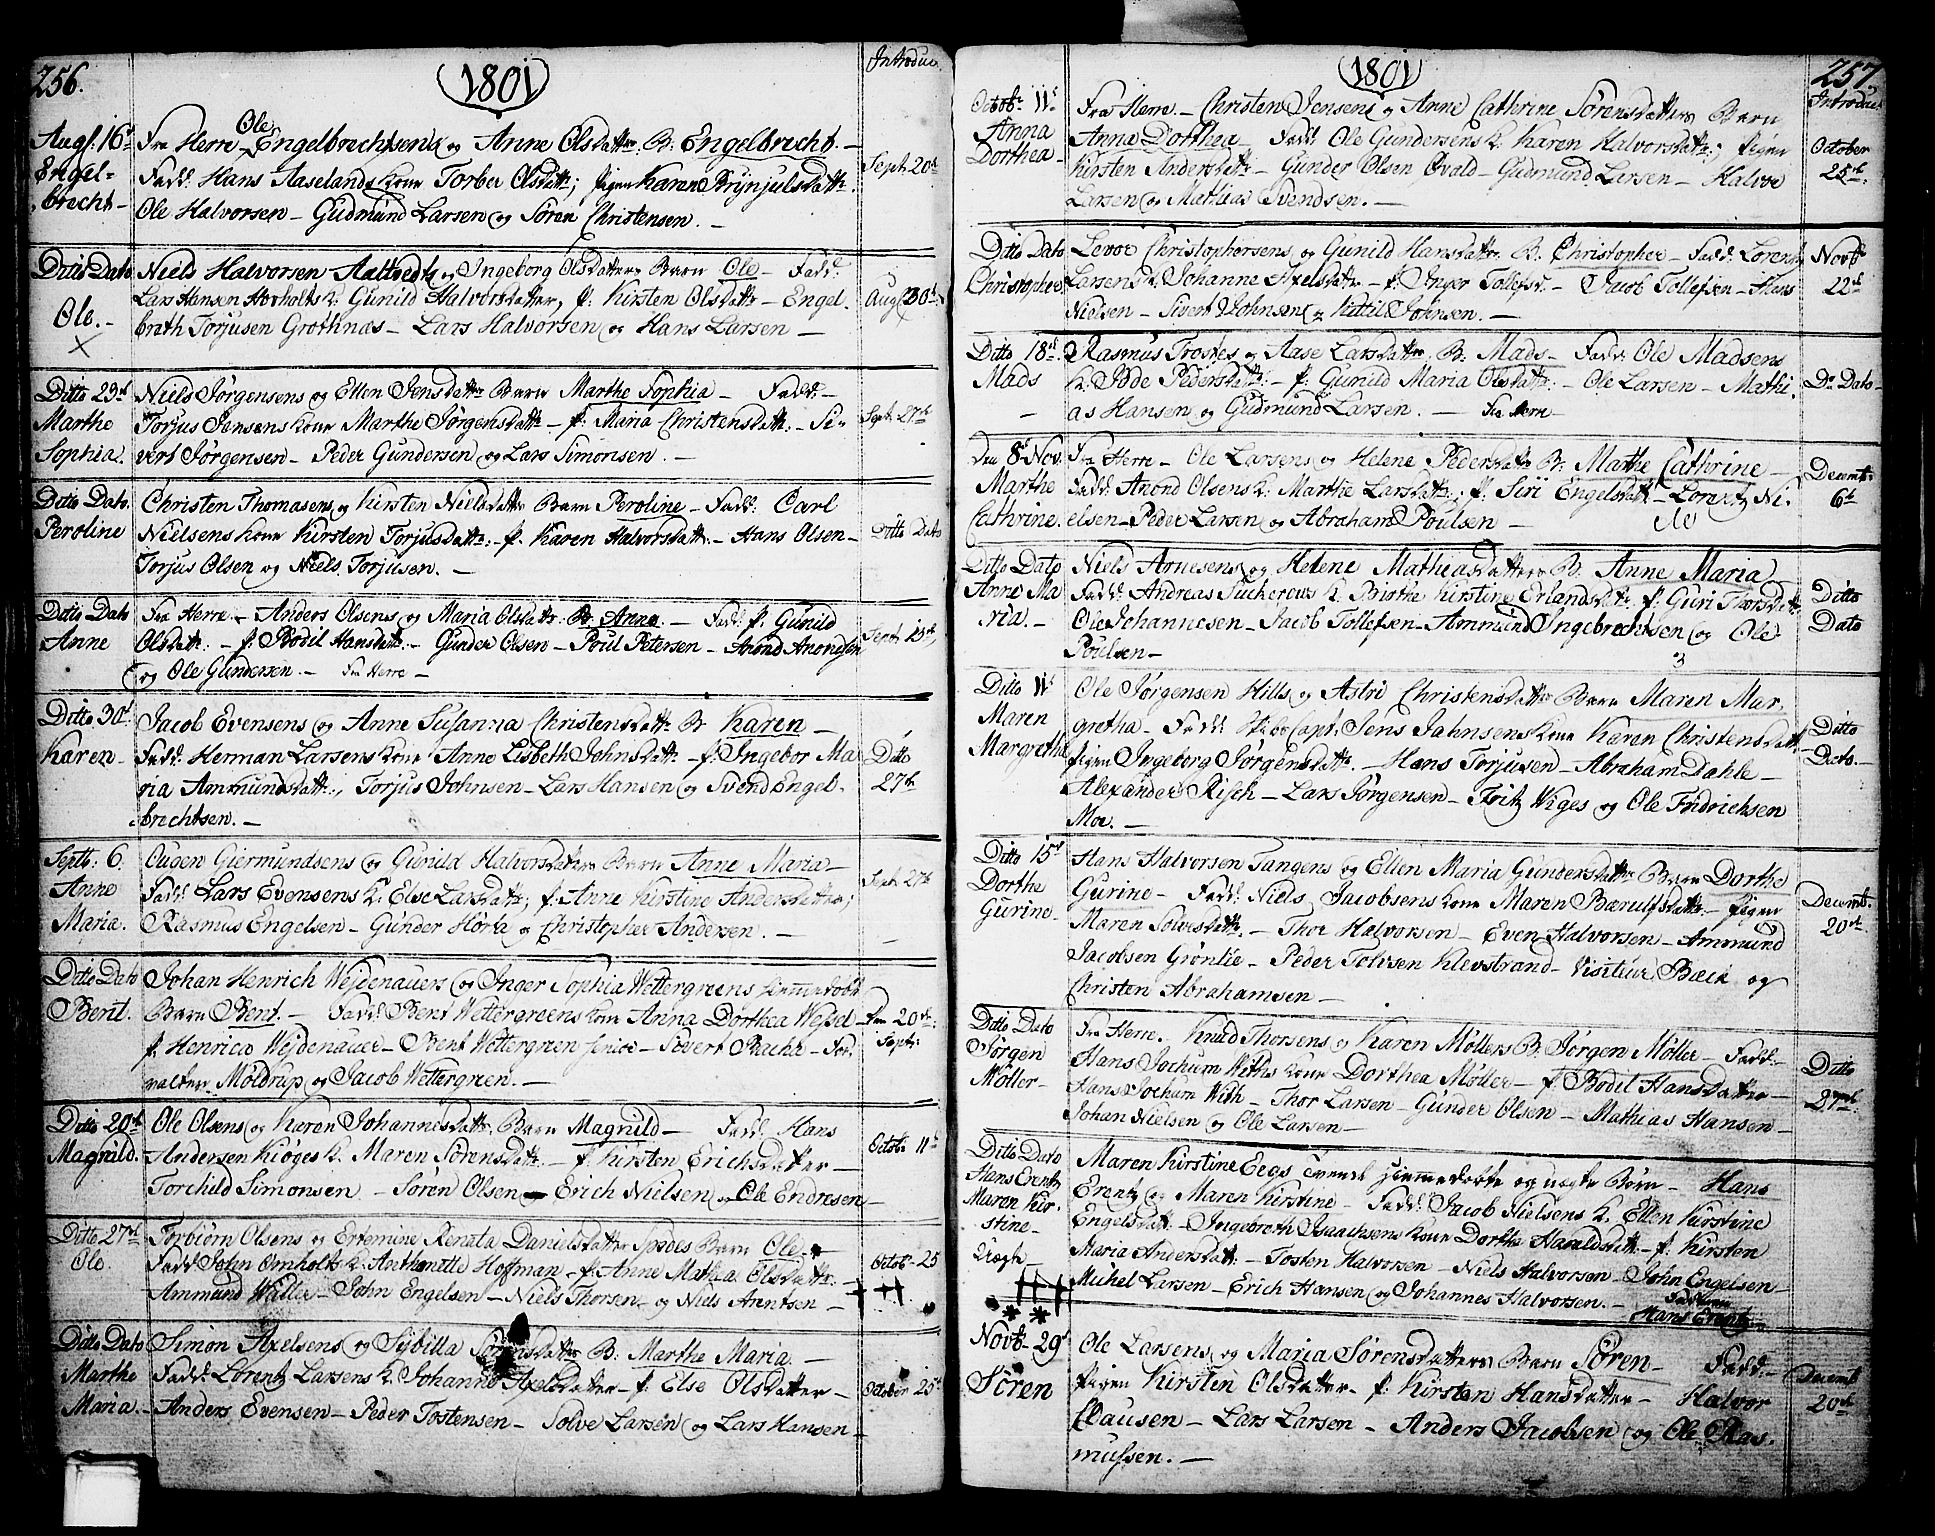 256.
1801
Introduc
Augs: 16d
Engel-
brecht-
Fra Herre- Ole Engelbrechtsens og Anne Olsdatter: B: Engelbrecht. -
Fadd: Hans Aaselands kone Torber Olsdattr; pigen Karen Brynjulsdattr.
Ole Halvorsen - Gudmund Larsen og Søren Christensen. -
Septr 20de
Ditto Dato
Ole. -
Niels Halvorsen Aaltvedt og Ingeborg Olsdatters Barn Ole - Fadd:
Lars Hansen K: Gunild Halvorsdatter, p: Kirsten Olsdattr - Engel-
breth Torjusen Grothnæs - Lars Halvorsen og Hans Larsen -
Augs 30te
Ditto 23d
Marthe
Sophia.
Niels Jørgensens og Ellen Jensdattrs Barn Marthe Sophia - Fadd: -
Torjus Jensens kone Marthe Jørgensdattr - p: Maria Christensdattr: - Si-
vert Jørgensen - Peder Gundersen og Lars Simonsen. -
Septr 27de
Ditto Dato.
Peroline
Christen Thomasens og Kirsten Nielsdattrs Barn Peroline - Fadd: Carl
Nielsens kone Kirsten Torjusdattr: - p. Karen Halvorsdattr: - Hans Olsen -
Torjus Olsen og Niels Torjusen. -
Ditto Dato
Ditto Dato
Anne
Fra Herre - Anders Olsens og Maria Olsdattr: B: Anne. - Fadd: p: Gunild
Olsdattr. - p: Bodil Hansdattr. - Gunder Olsen - Poul Petersen - Anond Anondsen
og Ole Gundersen. - Fra Herre -
Septr
Ditto 30d
Karen -
Jacob Evensens og Anne Susanna Christensdattr B: Karen -
Fadd: Herman Larsens kone Anne Lisbeth Johnsdattr - p: Ingebor Ma-
ria Ammundsdattr:, Torjus Johnsen - Lars Hansen og Svend Engel-
brechtsen. -
Ditto
27de
Septb: 6.
Anne
Maria.
Ougen Giermundsens og Gunild Halvorsdatters Barn Anne Maria -
Fadd: Lars Evensens K: Else Larsdattr; p: Anne Kirstine Andersdatter;
Rasmus Engelsen - Gunder Hørte og Christopher Andersen. -
Septr 27de
Ditto Dato
Bent.
Johan Henrich Wejdenauers og Inger Sophia Wettergreens hiemmedøbt
Barn Bent. - Fadd: Bent Wettergreens kone Anna Dorthea Wessel -
p. Henrica Wejdenauer - Bent Wettergreen senior - Sivert Bache - For-
valter Møldrup og Jacob Wettergreen. -
Den 20de
Septr:
Ditto 20d
Magnild.
Ole Olsens og Karen Johannesdattr: Barn Magnild - Fadd: Hans
Andersen Kiøges K. Maren Sørensdattr. - p. Kirsten Erichsdatter -
Torchild Simonsen - Søren Olsen - Erich Nielsen og Ole Endresen -
Octob: 11te
Ditto 27d
Ole.
Torbiørn Olsens og Ertemine Renata Danielsdatter Spødes Barn Ole -
Fadd: John Omholts K: Anthonette Hoffman - p: Anne Mathia Olsdattr: -
Ammund Walle - John Engelsen - Niels Thorsen - og Niels Arentsen -
Octob: 25
Ditto Dato
Marthe
Maria.
Simon Axelsens og Sibilla Sørensdattrs B: Marthe Maria. -
Fadd: Lorentz Larsens K: Johanne Axelsdatter - p: Else Olsdatter -
Anders Evensen - Peder Tostensen - Solve Larsen og Lars Hansen -
October 25d
1801
257
Introduc.
Octobr 11te
Anna
Dorthea -
Fra Herre - Christen Jensens og Anne Cathrine Sørensdatters Barn
Anna Dorthea - Fadd: Ole Gundersens K: Karen Halvorsdattr; pigen
Kirsten Andersdattr - Gunder Olsen Øvald - Gudmund Larsen - Halvor
Larsen og Mathias Svendsen. -
October
25de
Ditto Dato
Christopher
Levor Christophersens og Gunild Hansdattr B. Christopher - Fadd: Lorentz
Larsens K: Johanne Axelsdattr - p: Inger Tollefsd. - Jacob Tollefsen - Hans
Nielsen - Sivert Johnsen og Kittil Johnsen. -
Novbr
22de
Ditto 18de
Mads
-
Rasmus Trostes og Aase Larsdattr, B: Mads - Fadd: Ole Madsens
K: Pedersdattr: - p: Gunild Maria Olsdattr: - Ole Larsen - Mathi-
as Hansen og Gudmund Larsen. - Fra Herre -
Do Dato -
Den 8de Nov.
Marthe
Cathrine.
Fra Herre - Ole Larsens og Helene Pedersdattr B: Marthe Cathrine -
Fadd: Anond Olsens K: Marthe Larsdattr; p: Siri Engelsdattr - Lorentz Ni-
elsen - Peder Larsen og Abraham Poulsen -
Decemb:
6te
Ditto Dato
Anne Ma
ria. -
Niels Arnesens og Helene Mathiasdatters B: Anne Maria
Fadd: Andreas K: Birthe Kirstine Erlandsdattr. p: Guri Thorsdattr
Ole Johannesen - Jacob Tollefsen - Ammund Ingebrechtsen og Ole
Poulsen -
Ditto
Dato
Ditto 11te
Maren
Margretha
Ole Jørgensen Hills og Astri Christensdattr Barn Maren Mar-
gretha - Fadd: Skibs Capt: Jens Jahnsens kone Karen Christensdattr
pigen Ingeborg Jørgensdattr. - Hans Torjusen - Abraham Dahle -
Alexander Risch - Lars Jørgensen - Fritz Wiges og Ole Fridrichsen
Moe. -
Ditto
Dato. -
Ditto 15d
Dorthe
Gurine -
Hans Halvorsen Tangens og Ellen Maria Gundersdattrs Barn Dorthe
Gurine - Fadd: Niels Jacobsens kone Maren Bærulfsdattr: - pigen
Maren Solvesdattr. - Thor Halvorsen - Even Halvorsen - Ammund
Jacobsen Grønlie - Peder Tolvsen Klevstrand - Visiteur Bæck og
Christen Abrahamsen -
Decemb:
20de
Ditto Dato
Jørgen
Møller -
Fra Herre. Knud Thorsens og Karen Møllers B. Jørgen Møller - Fadd:
Hans Jochum Withs kone Dorthea Møller - p. Bodil Hansdatter -
Hans Jochum With - Thor Larsen - Gunder Olsen - Mathias Hansen -
Johan Nielsen og Ole Larsen -
Ditto
27de
Ditto Dato
Hans Erentz
Maren Kir-
stine -
Uægte
Maren Kirstine Eegs tvende hiemmedøbte og uægte Børn - Hans
Erentz og Maren Kirstine - Fadd: Jacob Nielsens K. Ellen Kirstine
Engelsdattr - Ingebreth Isaachsens kone Dorthe Haraldsdattr - p: Kirsten
Maria Andersdattr - Tosten Halvorsen - Niels Halvorsen - John Engelsen -
Michel Larsen - Erich Hansen og Johannes Halvorsen. - Faderen
Hans Erentz
Novb: 29d
Sören
Ole Larsens og Maria Sørensdatters Barn Søren - Fadd: -
pigen Kirsten Olsdatter - p: Kirsten Hansdatter - Halvor
Clausen - Lars Larsen - Anders Jacobsen og Ole Ras-
mussen. -
Decemb:
20de